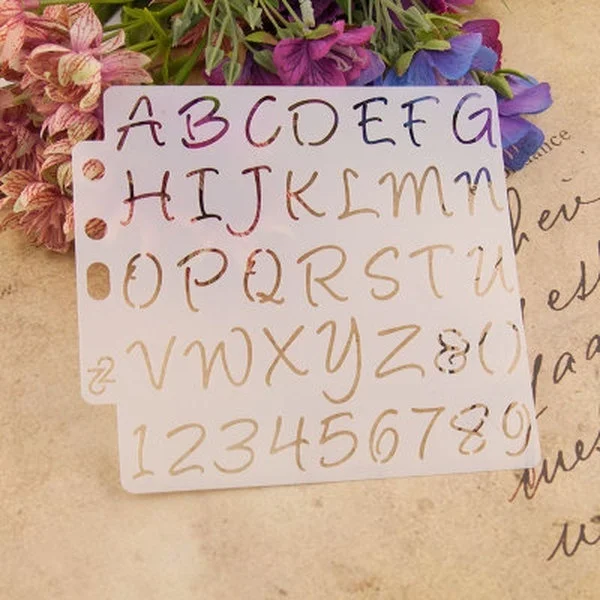 ABCDEFG
HIJKLMN
OPQRSTU
VWXYZ&()
123456789